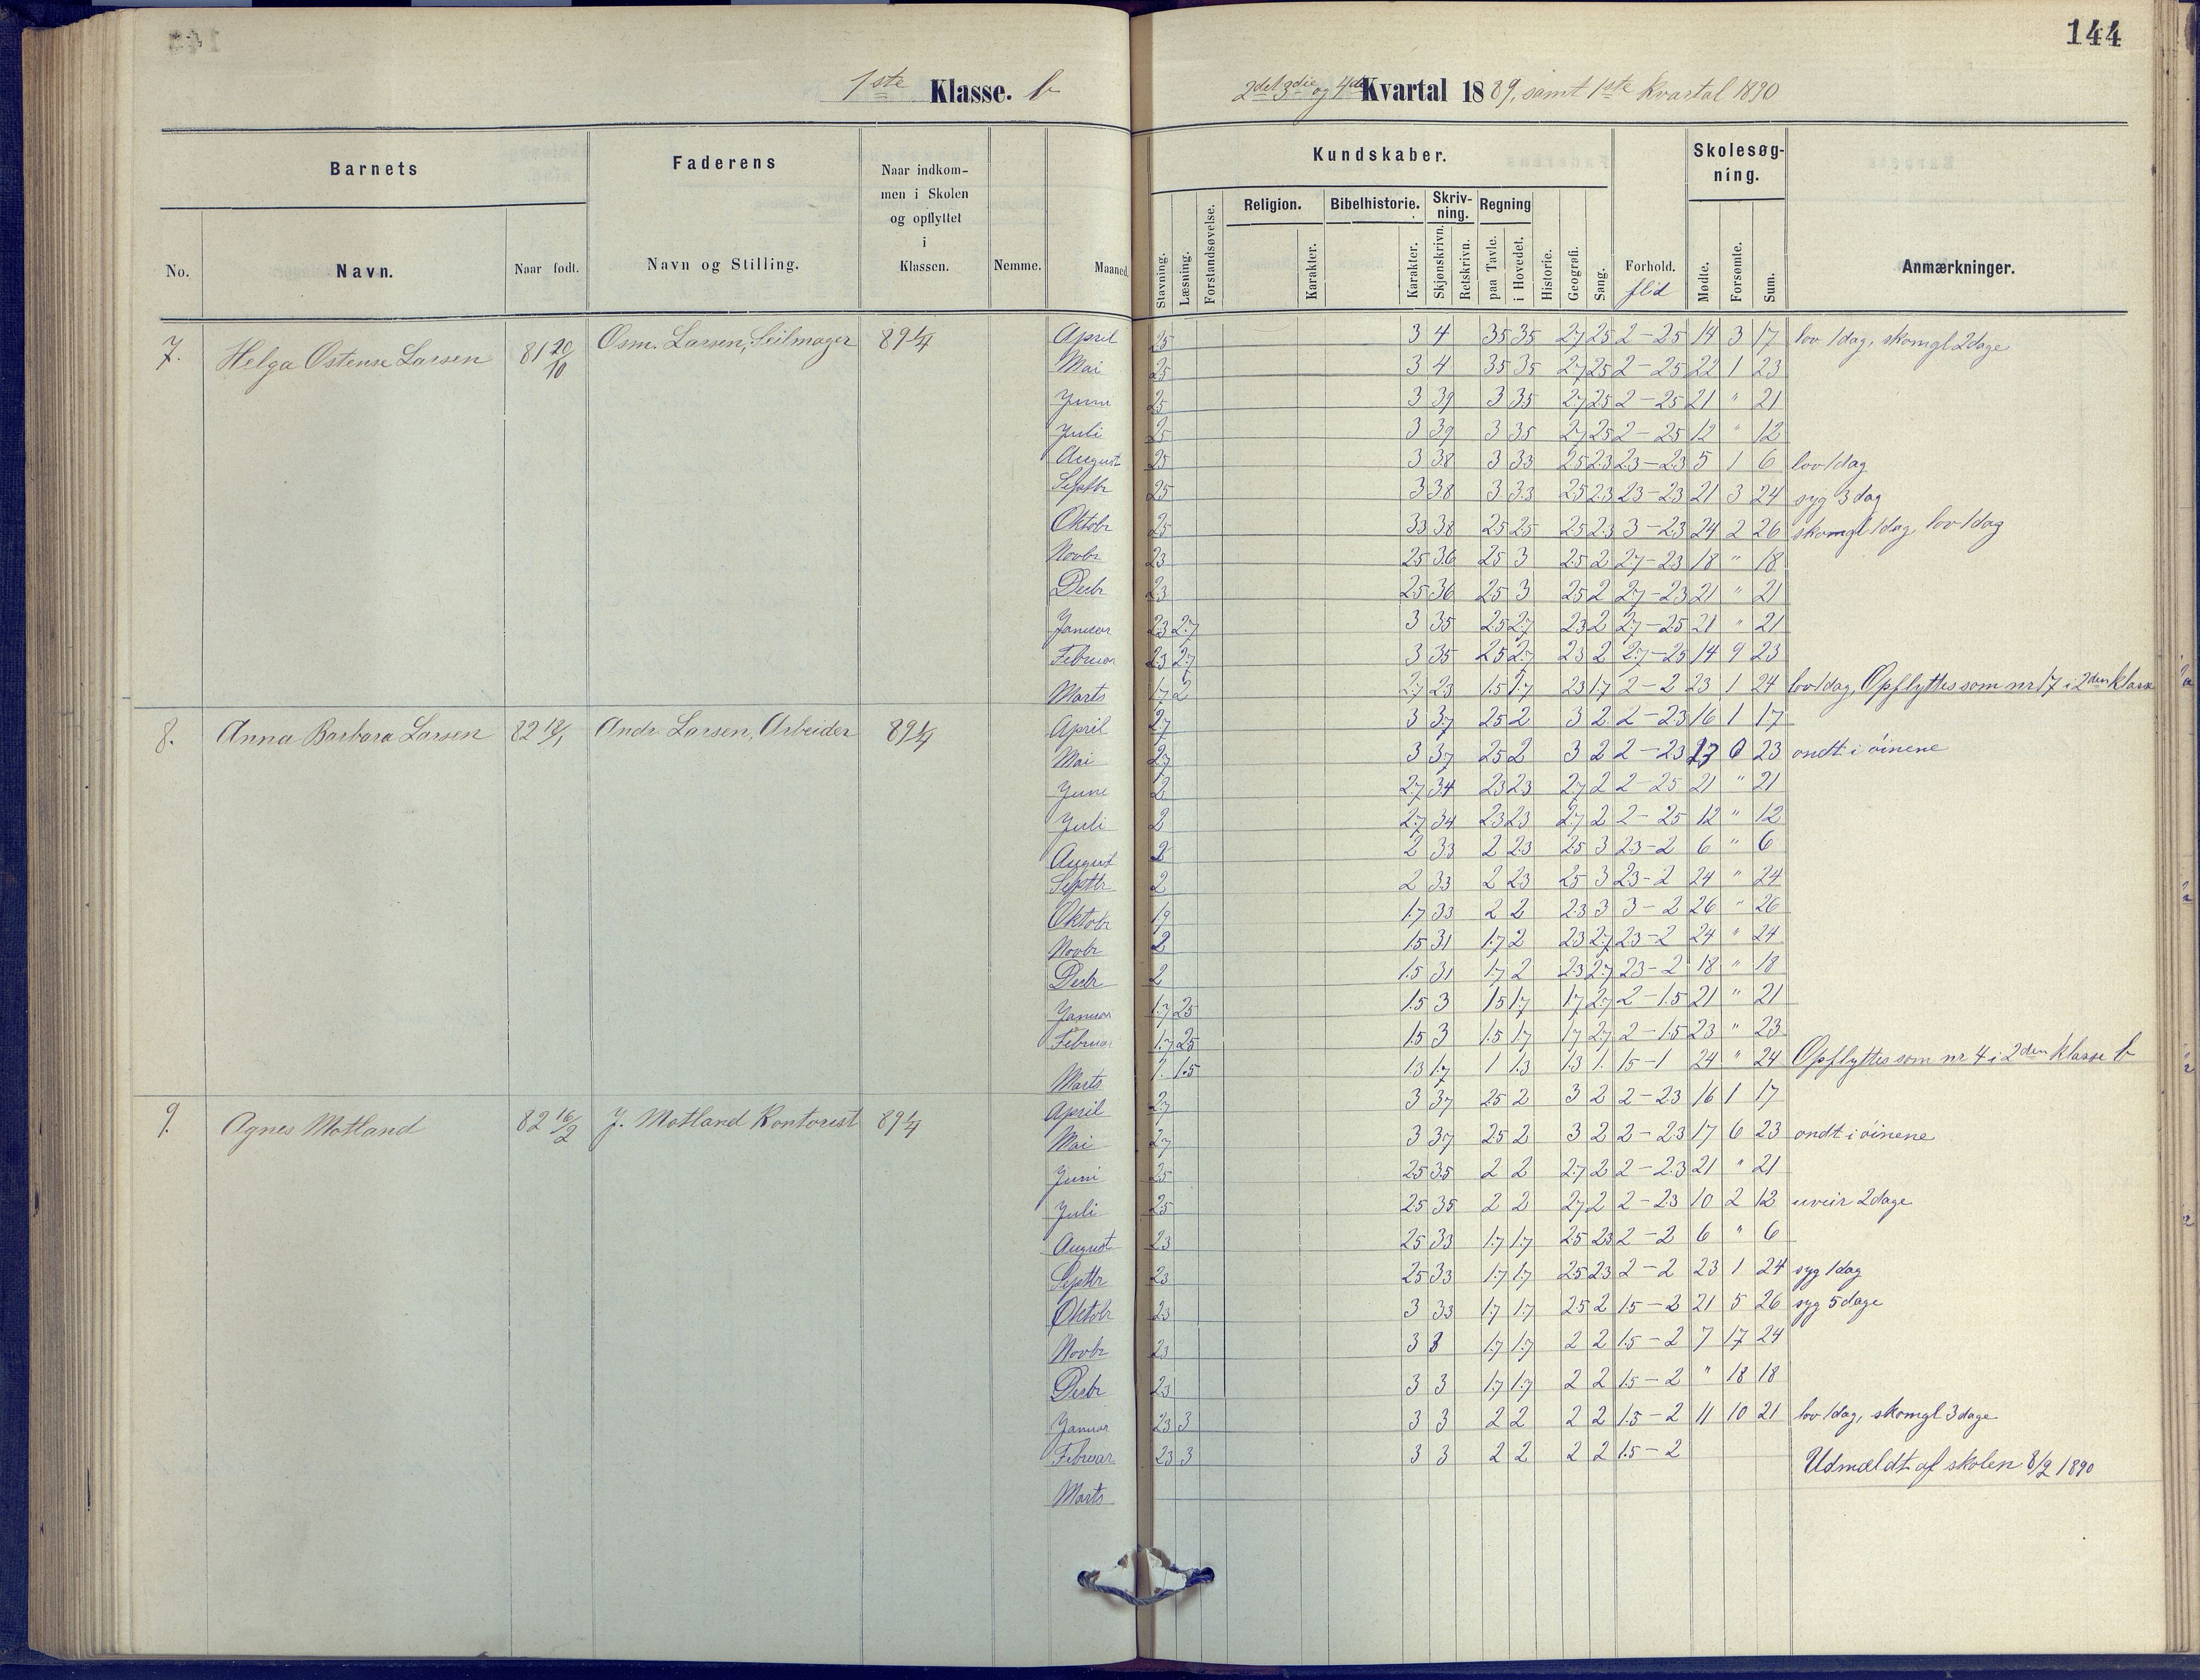 144
1ste Klasse. b
2det 3die og 4de Kvartal 1889, samt 1ste Kvartal 1890
Barnets
Faderens
Naar indkom-
men i Skolen
og opflyttet
i
Klassen.
No.
Navn.
Naar født.
Navn og Stilling.
Nemme.
Maaned.
Kundskaber.
Skolesøg-
ning.
Religion.
Bibelhistorie.
Skriv-
ning.
Regning
Stavning.
Læsning.
Forstandsøvelse.
Karakter.
Karakter.
Skjønskrivn.
Retskrivn.
paa Tavle.
i Hovedet.
Historie.
Geografi.
Sang.
Forhold.
flid
Mødte.
Forsømte.
Sum.
Anmærkninger.
7. Helga Ostense Larsen 81 20/10 Osm. Larsen, Seilmager 89 1/4
April 25 3 4 35 35 27 25 2-25 14 3 17 lov 1dag, skomgl 2dage
Mai 25 3 4 35 35 27 25 2-25 22 1 23
Juni 25 3 39 3 35 27 25 2-25 21 " 21
Juli 25 3 39 3 35 27 25 2-25 12 " 12
August 25 3 38 3 33 25 23 23-23 5 1 6 lov 1dag
Septbr 25 3 38 3 33 25 23 23-23 21 3 24 syg 3 dag
Oktobr 25 33 38 25 25 25 23 3-23 24 2 26 skomgl 1dag, lov 1dag
Novbr 23 25 36 25 3 25 2 27-23 18 " 18
Decbr 23 25 36 25 3 25 2 27-23 21 " 21
Januar 23 27 3 35 25 27 23 2 27-25 21 " 21
Februar 23 27 3 35 25 27 23 2 27-25 14 9 23
Marts 17 2 27 23 15 17 23 17 2-2 23 1 24 lov 1dag, Opflyttes som nr 17 i 2den Klasse
8. Anna Barbara Larsen 82 18/1 Andr. Larsen, Arbeider 89 1/4
April 27 3 37 25 2 3 2 2-23 16 1 17
Mai 27 3 37 25 2 3 2 2-23 17 6 23 ondt i öinene
Juni 2 27 34 23 23 27 2 2-25 21 " 21
Juli 2 27 34 23 23 27 2 2-25 12 " 12
August 2 2 33 2 23 25 3 23-2 6 " 6
Septbr 2 2 33 2 23 25 3 23-2 24 " 24
Oktobr 19 17 33 2 2 23 3 3-2 26 " 26
Novbr 2 15 31 17 2 23 27 23-2 24 " 24
Decbr 2 15 31 17 2 23 27 23-2 18 " 18
Januar 17 25 15 3 15 17 17 27 2-1.5 21 " 21
Februar 17 25 15 3 15 17 17 27 2-1.5 23 " 23
Marts 1. 1.5 1.3 1.7 1 1.3 1.3 1. 15-1 24 " 24 Opflyttes som nr 4 i 2den Klasse b
9. Agnes Motland 82 16/2 J. Motland Kontorist 89 1/4
April 27 3 37 25 2 3 2 2-23 16 1 17
Mai 27 3 37 25 2 3 2 2-23 17 6 23 ondt i öinene
Juni 25 25 35 2 2 27 2 2-23 21 " 21
Juli 25 25 35 2 2 27 2 2-23 10 2 12 uveir 2dage
August 23 25 33 17 17 25 23 2-2 6 " 6
Septbr 23 25 33 17 17 25 23 2-2 23 1 24 syg 1dag
Oktobr 23 3 33 17 17 25 2 15-2 21 5 26 syg 5dage
Novbr 23 3 3 17 17 2 2 15-2 7 17 24
Decbr 23 3 3 17 17 2 2 15-2 " 18 18
Januar 23 3 3 3 2 2 2 2 1.5-2 11 10 21 lov 1dag, skomgl 3dage
Februar 23 3 3 3 2 2 2 2 1.5-2 Udmeldt af skolen 8/2 1890
Marts